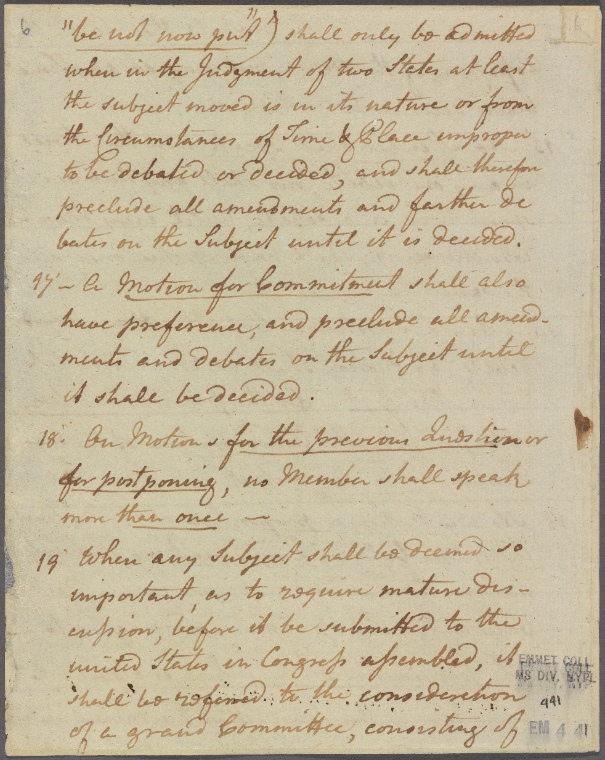 6
"be not now put") shall only be admitted
when in the Judgment of two States at least
the subject moved is in its nature or from
the Circumstances of Time & Place improper
to be debated or decided, and shall therefore
preclude all amendments and farther de
bates on the Subject until it is decided.
17 - A Motion for Commitment shall also
have preference, and preclude all amend-
ments and debates on the Subject until
it shall be decided.
18. On Motions for the previous Question or
for postponing, no Member shall speak
more than once —
19 When any Subject shall be deemed so
important, as to require mature dis-
cussion, before it be submitted to the
united States in Congress assembled, it
shall be referred to the consideration
of a grand Committee, consisting of
EMMET COLL
MS DIV. NYPL
441
EM 4 41